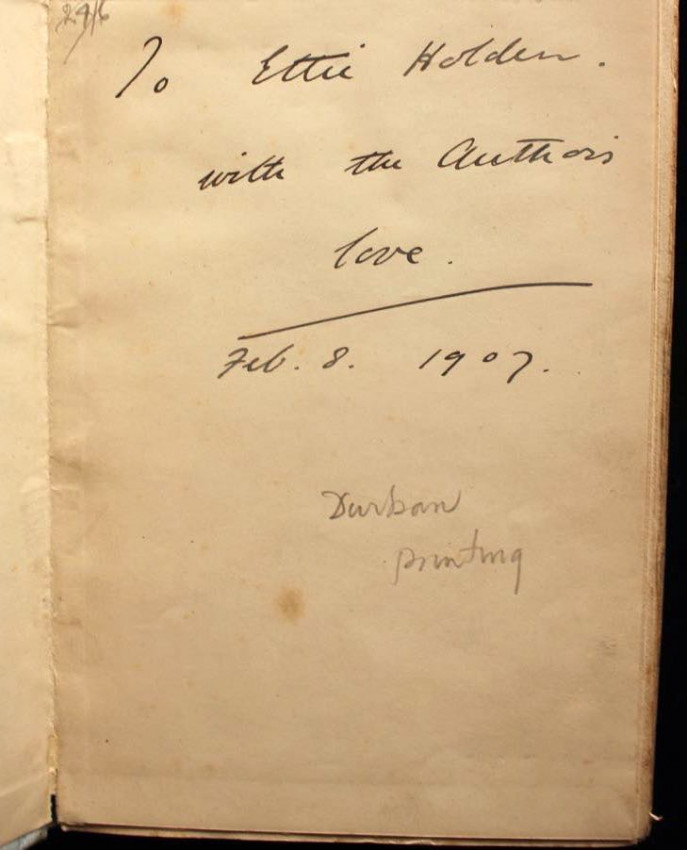 29/6
To Ettie Holden.
with the Authors
love.
Feb. 8. 1907.
Durban
printing